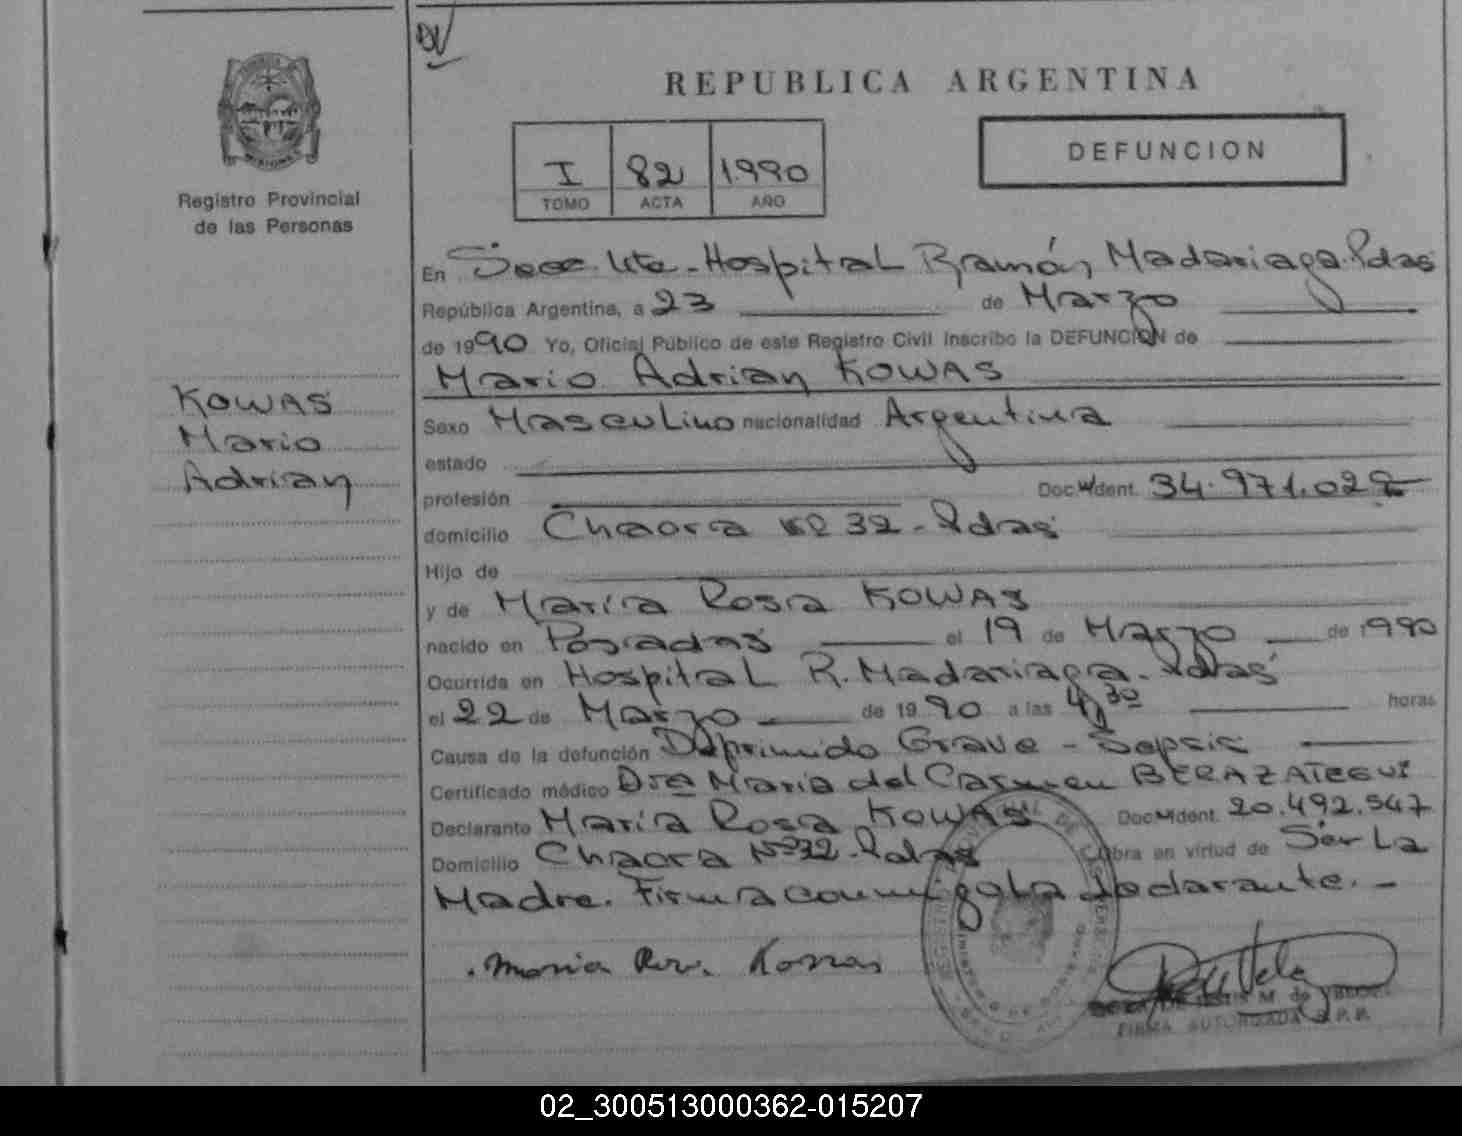 REPUBLICA ARGENTINA
DEFUNCION
I 82 1990
TOMO ACTA AÑO
Registro Provincial
de las Personas
En Secc. 4ta - Hospital Ramón Madariaga. Pdas
República Argentina, a 23 de Marzo
de 1990 Yo, Oficial Público de este Registro Civil Inscribo la DEFUNCION de
Mario Adrian KOWAS
KOWAS
Mario
Adrian
Sexo Masculino nacionalidad Argentina
estado
profesión Doc. Ident. 34.971.022
domicilio Chacra Nº 32 - Pdas
Hijo de
y de María Rosa KOWAS
nacido en Posadas el 19 de Marzo de 1990
Ocurrida en Hospital R. Madariaga - Pdas
el 22 de Marzo de 1990 a las 4,30 horas
Causa de la defunción Deprimido Grave - Sepsis
Certificado médico Dra Maria del Carmen BERAZATEGUI
Declarante María Rosa KOWAS Doc. Ident. 20.492.547
Domicilio Chacra Nº 32 - Pdas Obra en virtud de Ser La
Madre. Firma conmigo la declarante. -
Maria Kowas
FIRMA AUTORIZADA R.P.P.
02_300513000362-015207